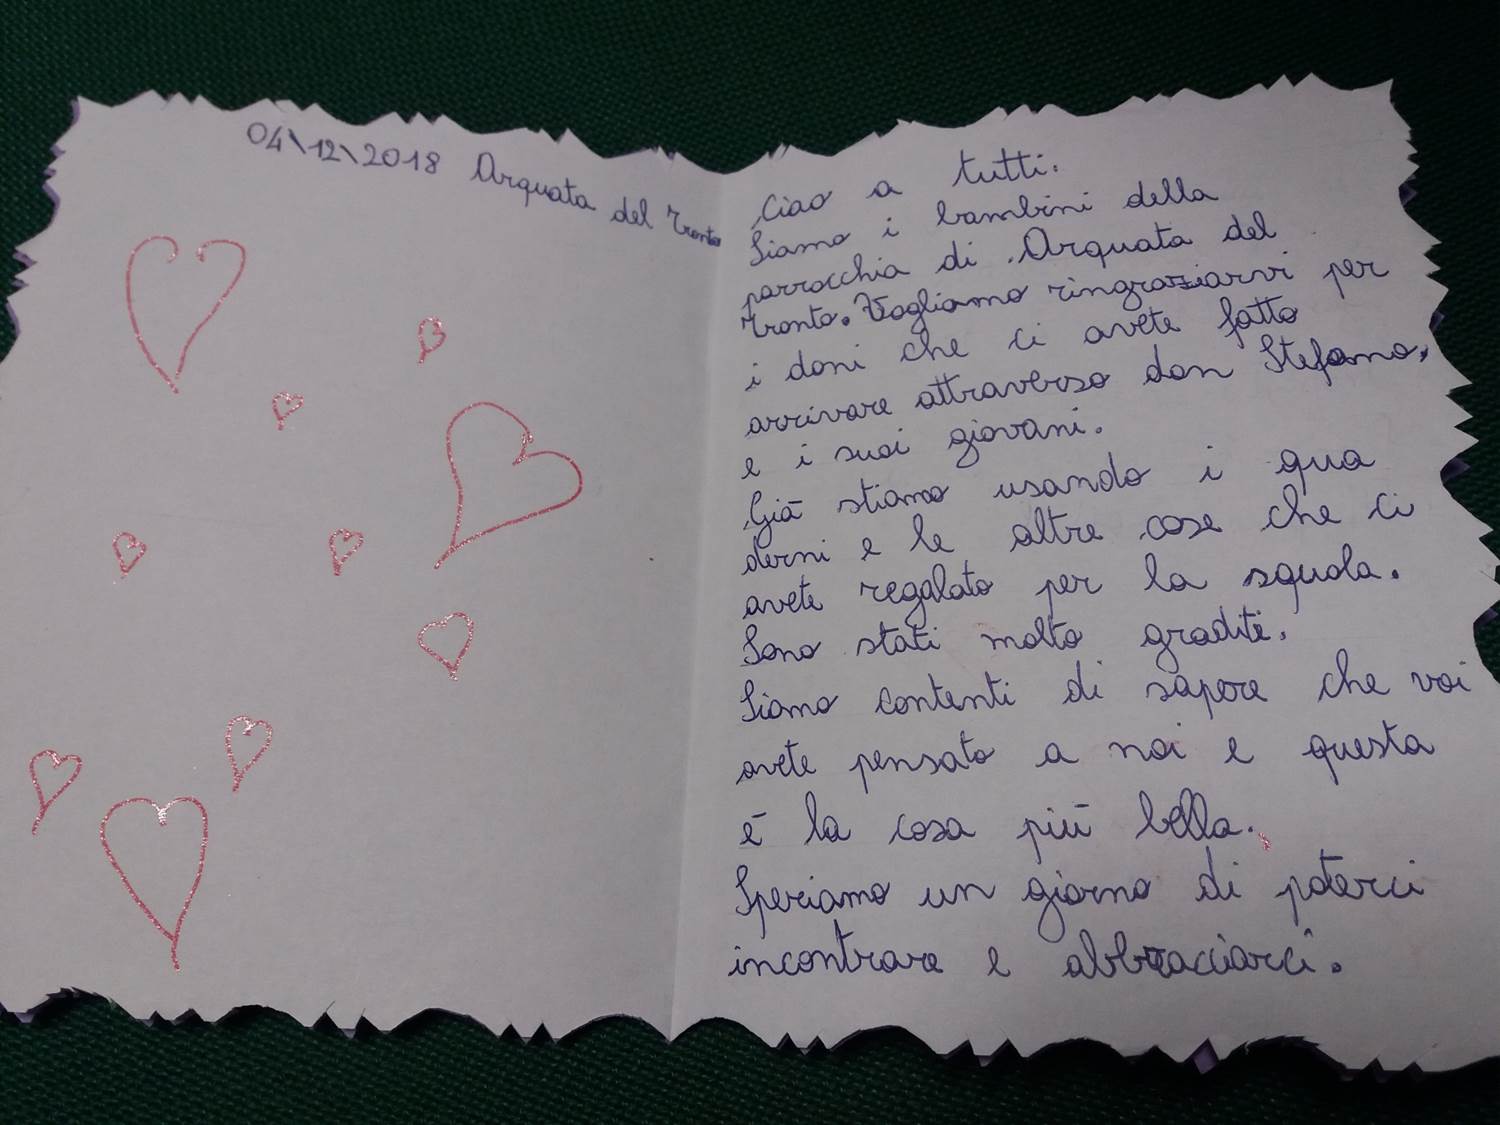 04\12\2018 Arquata del Tronto
Ciao a tutti.
Siamo i bambini della
parrocchia di Arquata del
Tronto. Vogliamo ringraziarvi per
i doni che ci avete fatto
arrivare attraverso don Stefano,
e i suoi giovani.
Già stiamo usando i qua
derni e le altre cose che ci
avete regalato per la squola.
Sono stati molto graditi.
Siamo contenti di sapere che voi
avete pensato a noi e questa
è la cosa più bella.
Speriamo un giorno di poterci
incontrare e abbracciarci.